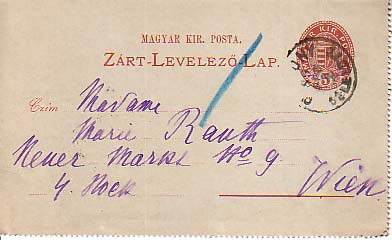 MAGYAR KIR. POSTA.
ZÁRT-LEVELEZŐ-LAP.
Czím Madame
Marie Rauth
Neuer Markt No 9
4. Stock
Wien